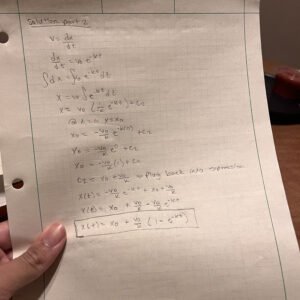 Solution part 2
v = dx/dt
dx/dt = v₀ e^(-kt)
∫dx = ∫v₀ e^(-kt) dt
x = v₀ ∫e^(-kt) dt
x = v₀ (-1/k e^(-kt)) + C₂
@ t=0 x=x₀
x₀ = -v₀/k e^(-k(0)) + C₂
x₀ = -v₀/k e^0 + C₂
x₀ = -v₀/k (1) + C₂
C₂ = x₀ + v₀/k → plug back into expression
x(t) = -v₀/k e^(-kt) + x₀ + v₀/k
x(t) = x₀ + v₀/k - v₀/k e^(-kt)
x(t) = x₀ + v₀/k (1 - e^(-kt))